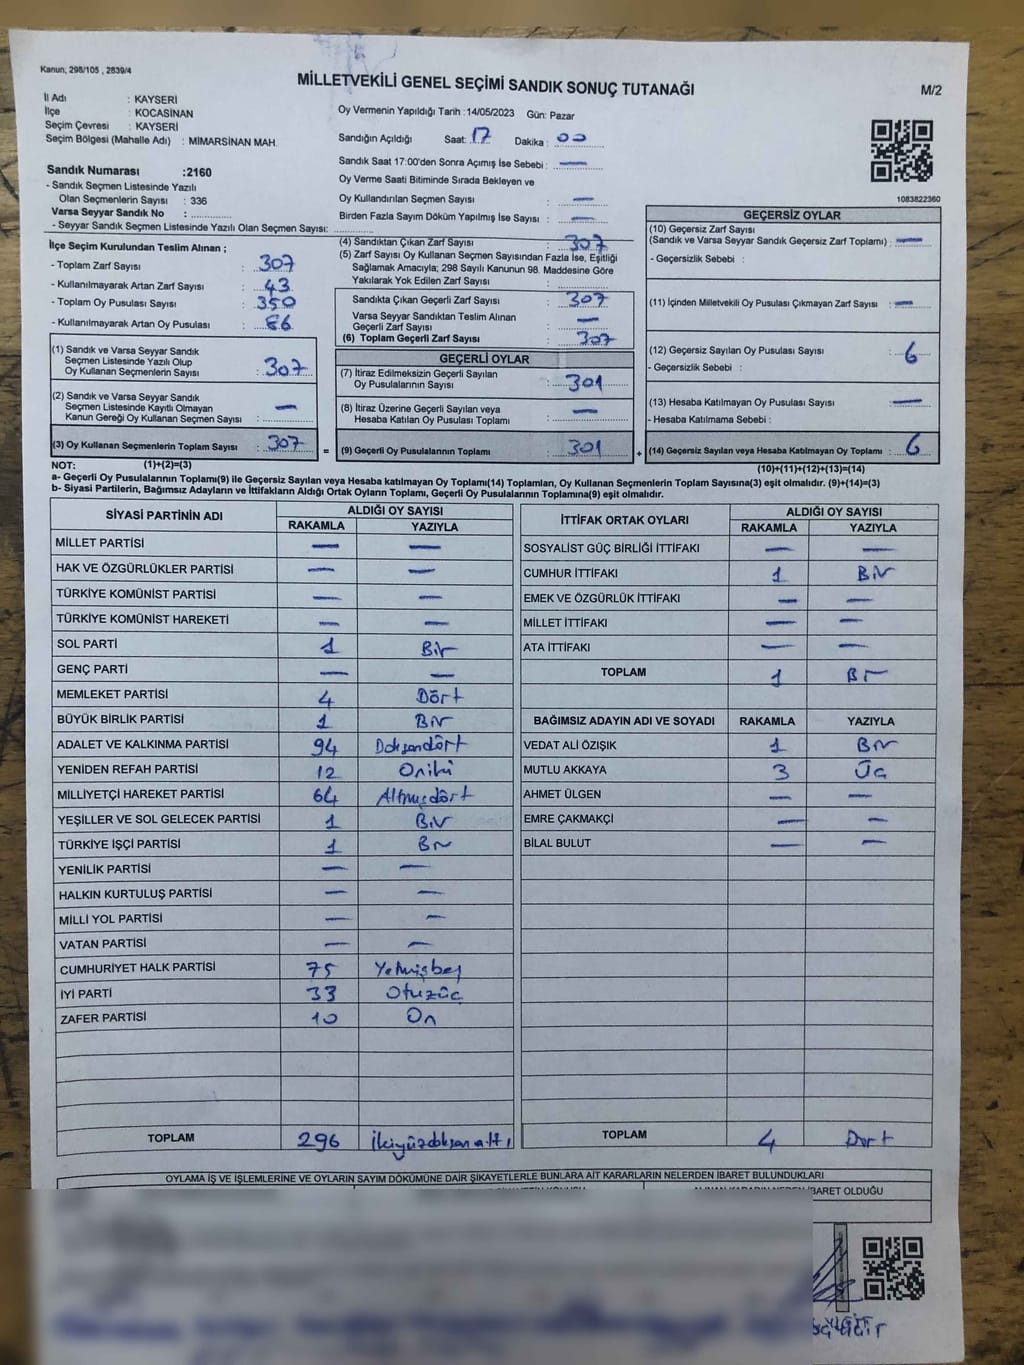 Kanun, 298/105 , 2839/4
MİLLETVEKİLİ GENEL SEÇİMİ SANDIK SONUÇ TUTANAĞI
M/2
İl Adı : KAYSERİ
İlçe : KOCASİNAN
Seçim Çevresi : KAYSERİ
Seçim Bölgesi (Mahalle Adı) : MİMARSİNAN MAH.
Oy Vermenin Yapıldığı Tarih :14/05/2023 Gün: Pazar
Sandığın Açıldığı Saat: 17 Dakika : 00
Sandık Saat 17:00'den Sonra Açımış İse Sebebi : —
Oy Verme Saati Bitiminde Sırada Bekleyen ve
Oy Kullandırılan Seçmen Sayısı : —
Birden Fazla Sayım Döküm Yapılmış İse Sayısı : —
Sandık Numarası :2160
- Sandık Seçmen Listesinde Yazılı
Olan Seçmenlerin Sayısı : 336
Varsa Seyyar Sandık No :
- Seyyar Sandık Seçmen Listesinde Yazılı Olan Seçmen Sayısı:
1083822360
İlçe Seçim Kurulundan Teslim Alınan ;
- Toplam Zarf Sayısı : 307
- Kullanılmayarak Artan Zarf Sayısı : 43
- Toplam Oy Pusulası Sayısı : 350
- Kullanılmayarak Artan Oy Pusulası :
(1) Sandık ve Varsa Seyyar Sandık
Seçmen Listesinde Yazılı Olup
Oy Kullanan Seçmenlerin Sayısı : 307
(2) Sandık ve Varsa Seyyar Sandık
Seçmen Listesinde Kayıtlı Olmayan
Kanun Gereği Oy Kullanan Seçmen Sayısı : —
(3) Oy Kullanan Seçmenlerin Toplam Sayısı : 307
(4) Sandıktan Çıkan Zarf Sayısı : 307
(5) Zarf Sayısı Oy Kullanan Seçmen Sayısından Fazla İse, Eşitliği
Sağlamak Amacıyla; 298 Sayılı Kanunun 98. Maddesine Göre
Yakılarak Yok Edilen Zarf Sayısı :
Sandıkta Çıkan Geçerli Zarf Sayısı : 307
Varsa Seyyar Sandıktan Teslim Alınan
Geçerli Zarf Sayısı : —
(6) Toplam Geçerli Zarf Sayısı : 307
GEÇERLİ OYLAR
(7) İtiraz Edilmeksizin Geçerli Sayılan
Oy Pusulalarının Sayısı : 301
(8) İtiraz Üzerine Geçerli Sayılan veya
Hesaba Katılan Oy Pusulası Toplamı : —
= (9) Geçerli Oy Pusulalarının Toplamı : 301
GEÇERSİZ OYLAR
(10) Geçersiz Zarf Sayısı
(Sandık ve Varsa Seyyar Sandık Geçersiz Zarf Toplamı) : —
- Geçersizlik Sebebi :
(11) İçinden Milletvekili Oy Pusulası Çıkmayan Zarf Sayısı : —
(12) Geçersiz Sayılan Oy Pusulası Sayısı : 6
- Geçersizlik Sebebi :
(13) Hesaba Katılmayan Oy Pusulası Sayısı : —
- Hesaba Katılmama Sebebi :
+ (14) Geçersiz Sayılan veya Hesaba Katılmayan Oy Toplamı : 6
NOT: (1)+(2)=(3)
(10)+(11)+(12)+(13)=(14)
a- Geçerli Oy Pusulalarının Toplamı(9) ile Geçersiz Sayılan veya Hesaba katılmayan Oy Toplamı(14) Toplamları, Oy Kullanan Seçmenlerin Toplam Sayısına(3) eşit olmalıdır. (9)+(14)=(3)
b- Siyasi Partilerin, Bağımsız Adayların ve İttifakların Aldığı Ortak Oyların Toplamı, Geçerli Oy Pusulalarının Toplamına(9) eşit olmalıdır.
SİYASİ PARTİNİN ADI
ALDIĞI OY SAYISI
RAKAMLA YAZIYLA
MİLLET PARTİSİ — —
HAK VE ÖZGÜRLÜKLER PARTİSİ — —
TÜRKİYE KOMÜNİST PARTİSİ — —
TÜRKİYE KOMÜNİST HAREKETİ — —
SOL PARTİ 1 Bir
GENÇ PARTİ — —
MEMLEKET PARTİSİ 4 Dört
BÜYÜK BİRLİK PARTİSİ 1 Bir
ADALET VE KALKINMA PARTİSİ 94 Doksandört
YENİDEN REFAH PARTİSİ 12 Oniki
MİLLİYETÇİ HAREKET PARTİSİ 64 Altmışdört
YEŞİLLER VE SOL GELECEK PARTİSİ 1 Bir
TÜRKİYE İŞÇİ PARTİSİ 1 Bir
YENİLİK PARTİSİ — —
HALKIN KURTULUŞ PARTİSİ — —
MİLLİ YOL PARTİSİ — —
VATAN PARTİSİ — —
CUMHURİYET HALK PARTİSİ 75 Yetmişbeş
İYİ PARTİ 33 Otuzüç
ZAFER PARTİSİ 10 On
TOPLAM 296 İkiyüzdoksanaltı
İTTİFAK ORTAK OYLARI
ALDIĞI OY SAYISI
RAKAMLA YAZIYLA
SOSYALİST GÜÇ BİRLİĞİ İTTİFAKI — —
CUMHUR İTTİFAKI 1 Bir
EMEK VE ÖZGÜRLÜK İTTİFAKI — —
MİLLET İTTİFAKI — —
ATA İTTİFAKI — —
TOPLAM 1 Bir
BAĞIMSIZ ADAYIN ADI VE SOYADI RAKAMLA YAZIYLA
VEDAT ALİ ÖZIŞIK 1 Bir
MUTLU AKKAYA 3 Üç
AHMET ÜLGEN — —
EMRE ÇAKMAKÇI — —
BİLAL BULUT — —
TOPLAM 4 Dört
OYLAMA İŞ VE İŞLEMLERİNE VE OYLARIN SAYIM DÖKÜMÜNE DAİR ŞİKAYETLERLE BUNLARA AİT KARARLARIN NELERDEN İBARET BULUNDUKLARI
İBARET OLDUĞU